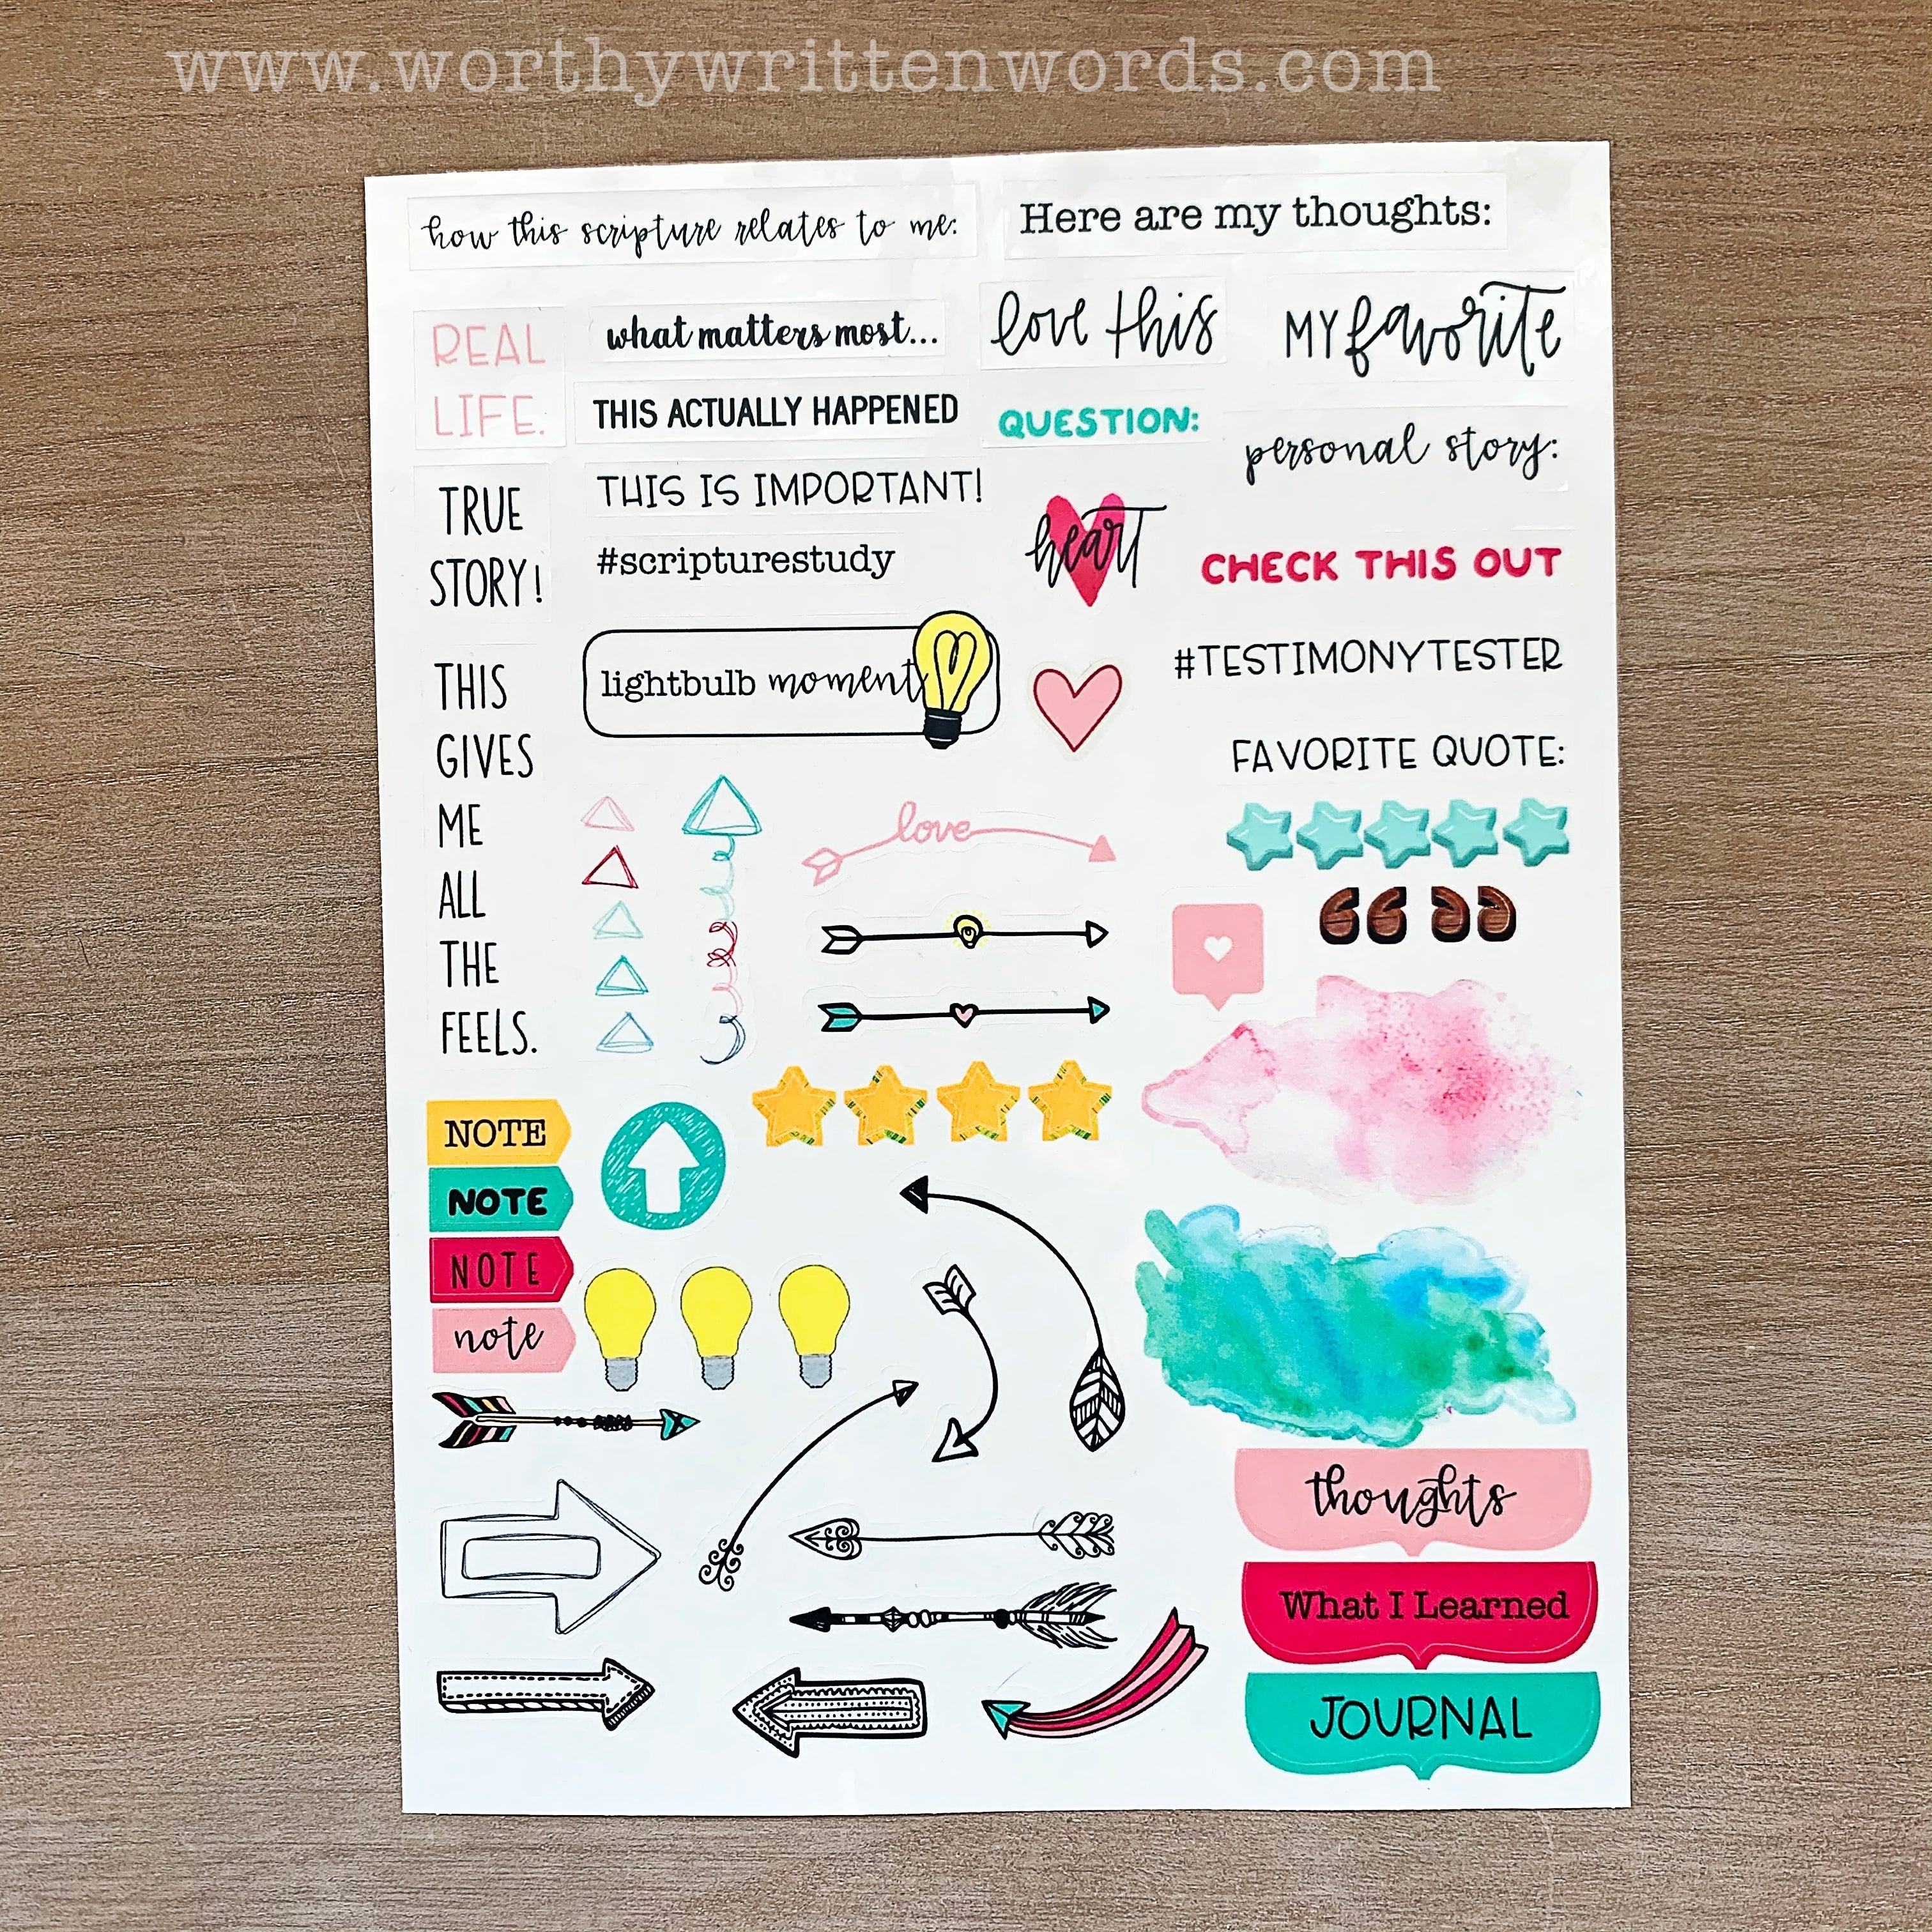 www.worthywrittenwords.com
how this scripture relates to me:
Here are my thoughts:
REAL
LIFE.
what matters most...
love this
MY favorite
THIS ACTUALLY HAPPENED
QUESTION:
personal story:
TRUE
STORY!
THIS IS IMPORTANT!
#scripturestudy
heart
CHECK THIS OUT
lightbulb moment
#TESTIMONYTESTER
THIS
GIVES
ME
ALL
THE
FEELS.
FAVORITE QUOTE:
love
“ ”
NOTE
NOTE
NOTE
note
thoughts
What I Learned
JOURNAL